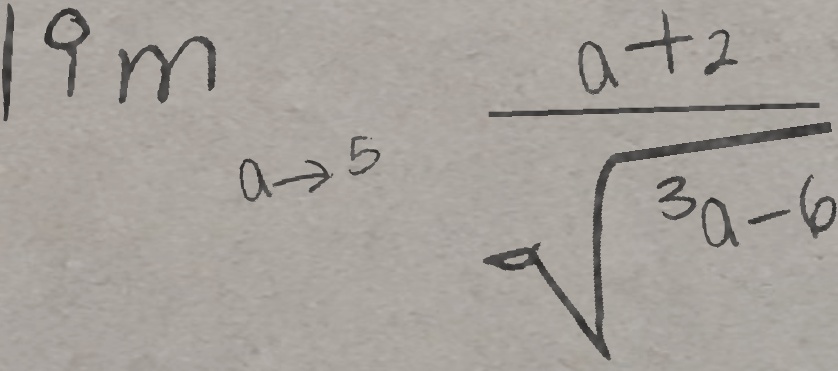 lim a→5 a+2
√3a-6